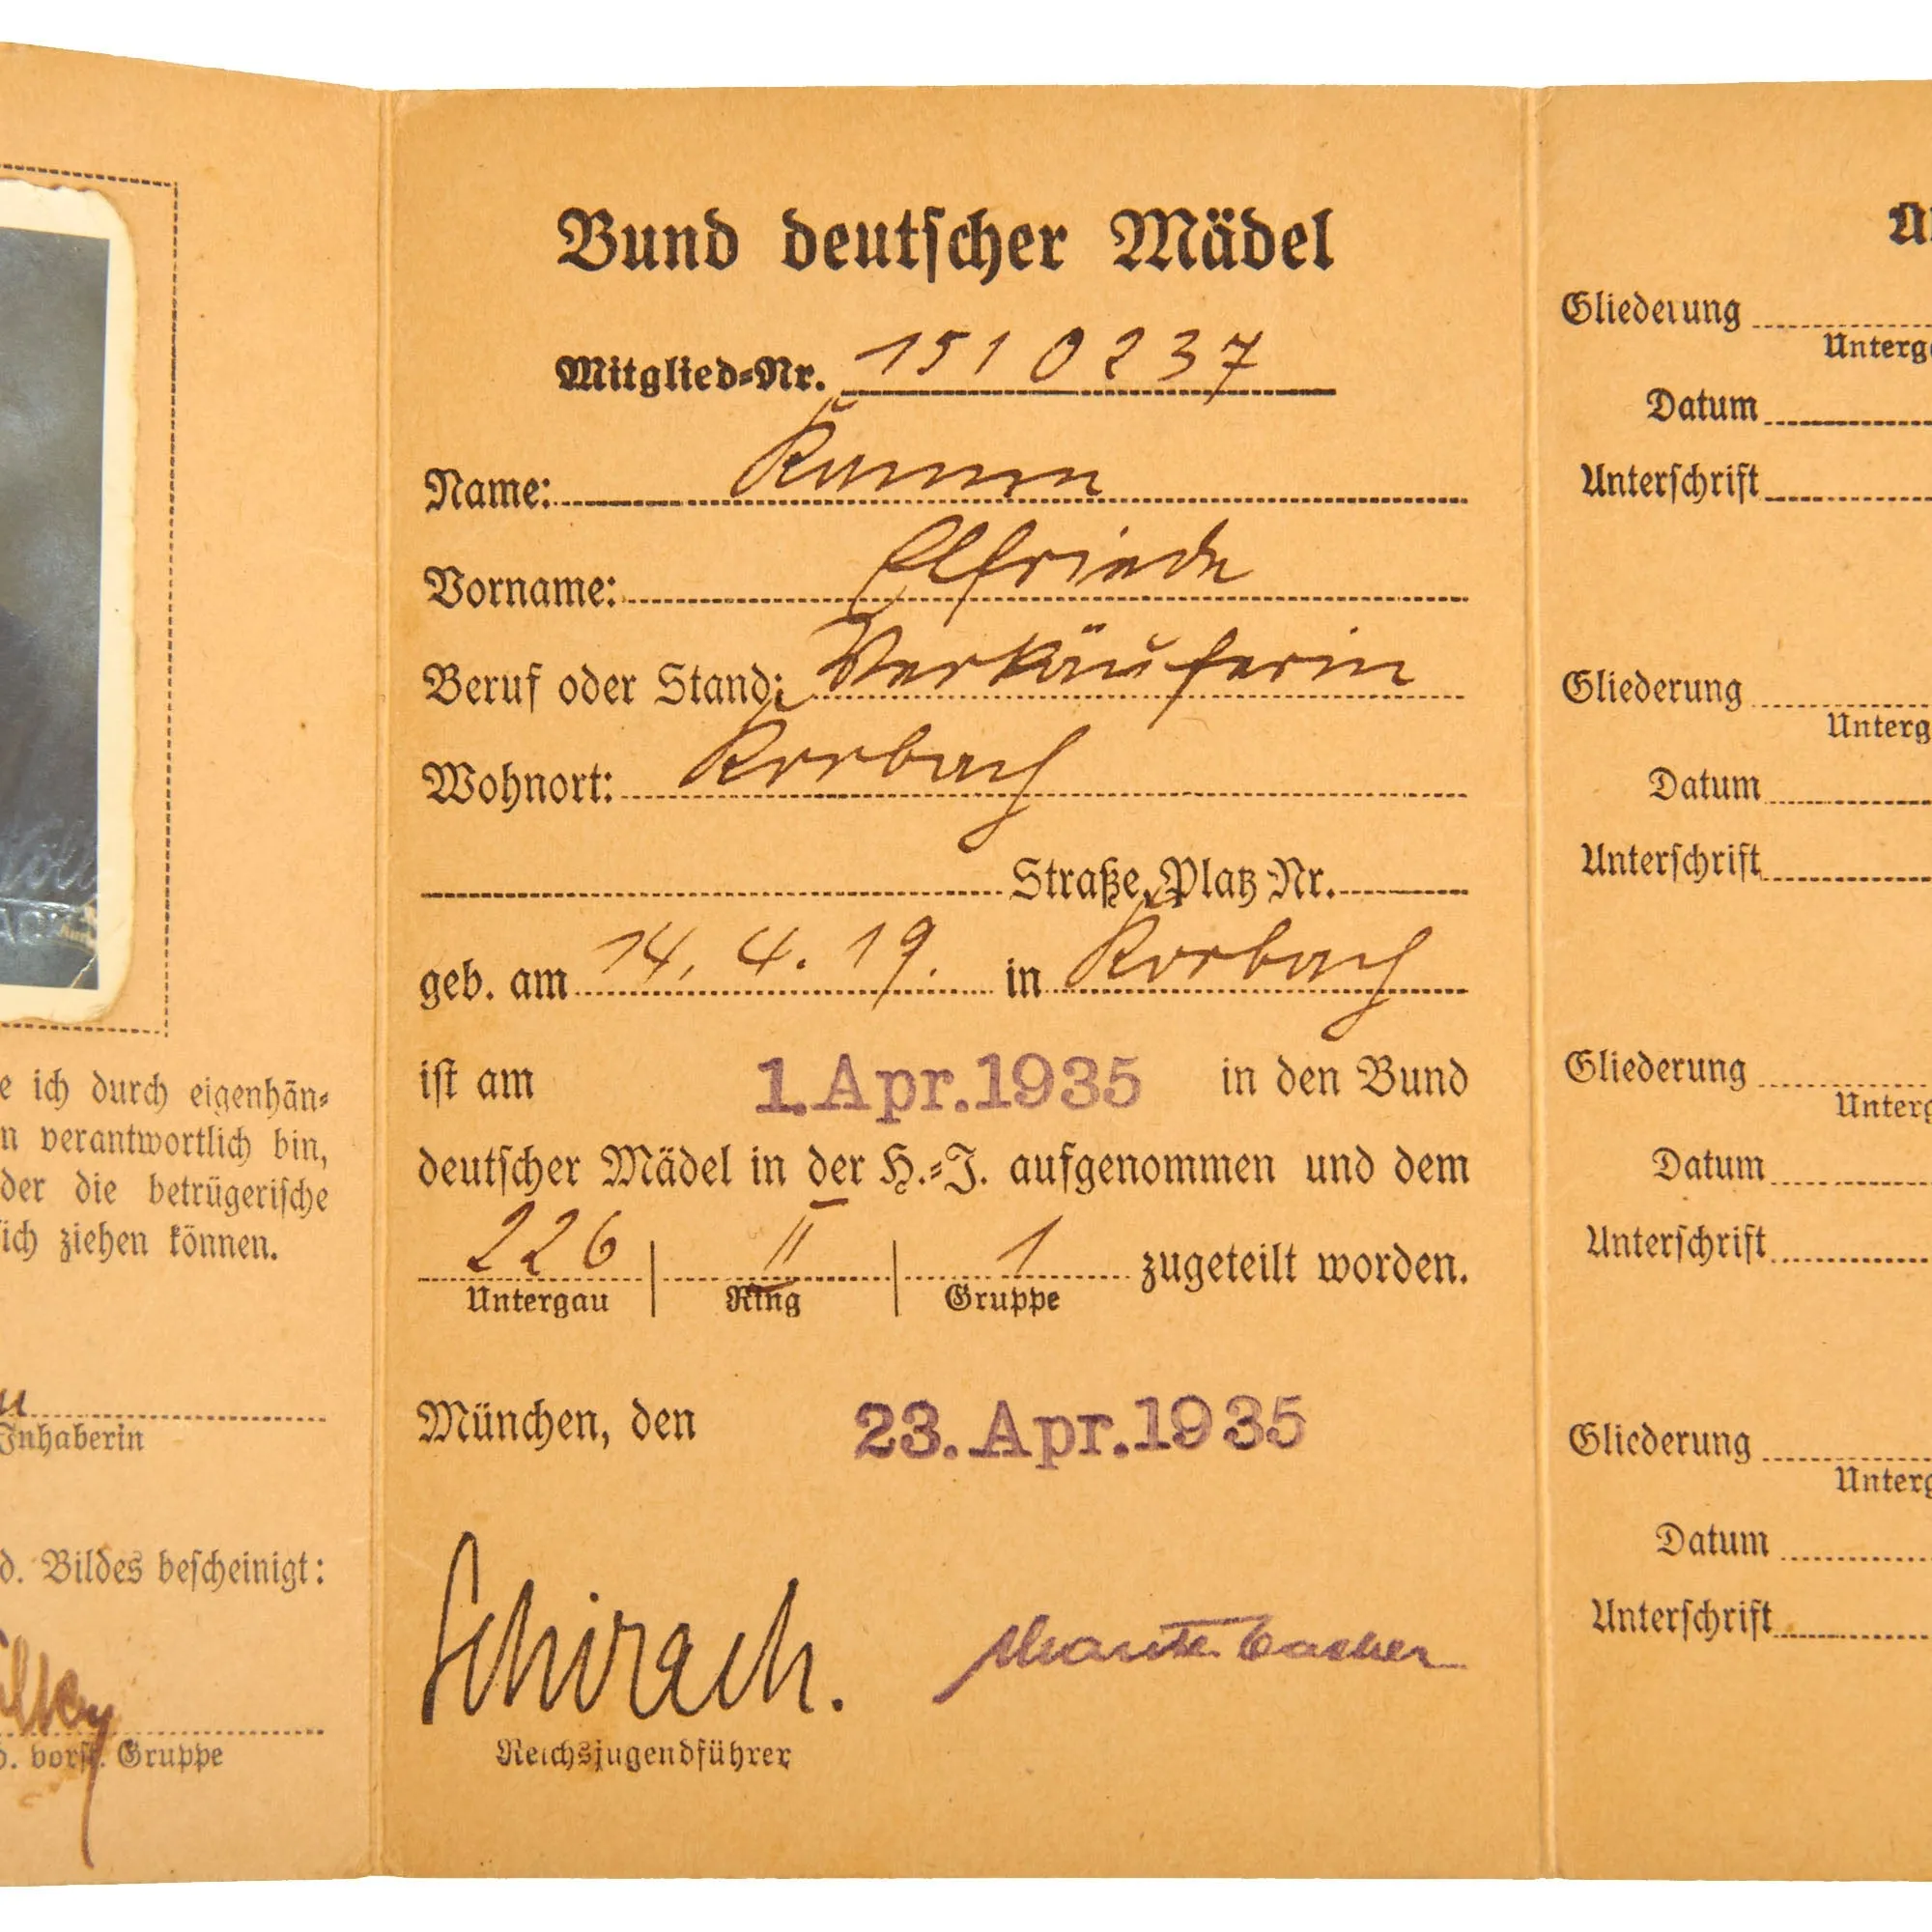 e ich durch eigenhän-
n verantwortlich bin,
der die betrügerische
ich ziehen können.
Inhaberin
d. Bildes bescheinigt:
d. vorst. Gruppe
Bund deutscher Mädel
Mitglied-Nr. 1510237
Name:
Vorname: Elfriede
Beruf oder Stand: Verkäuferin
Wohnort: Korbach
Straße, Platz Nr.
geb. am 14. 4. 19. in Korbach
ist am 1. Apr. 1935 in den Bund
deutscher Mädel in der H.-J. aufgenommen und dem
226 | II | 1 zugeteilt worden.
Untergau Ring Gruppe
München, den 23. Apr. 1935
Schirach.
Reichsjugendführer
Gliederung
Unterg
Datum
Unterschrift
Gliederung
Unterg
Datum
Unterschrift
Gliederung
Unterg
Datum
Unterschrift
Gliederung
Unterg
Datum
Unterschrift